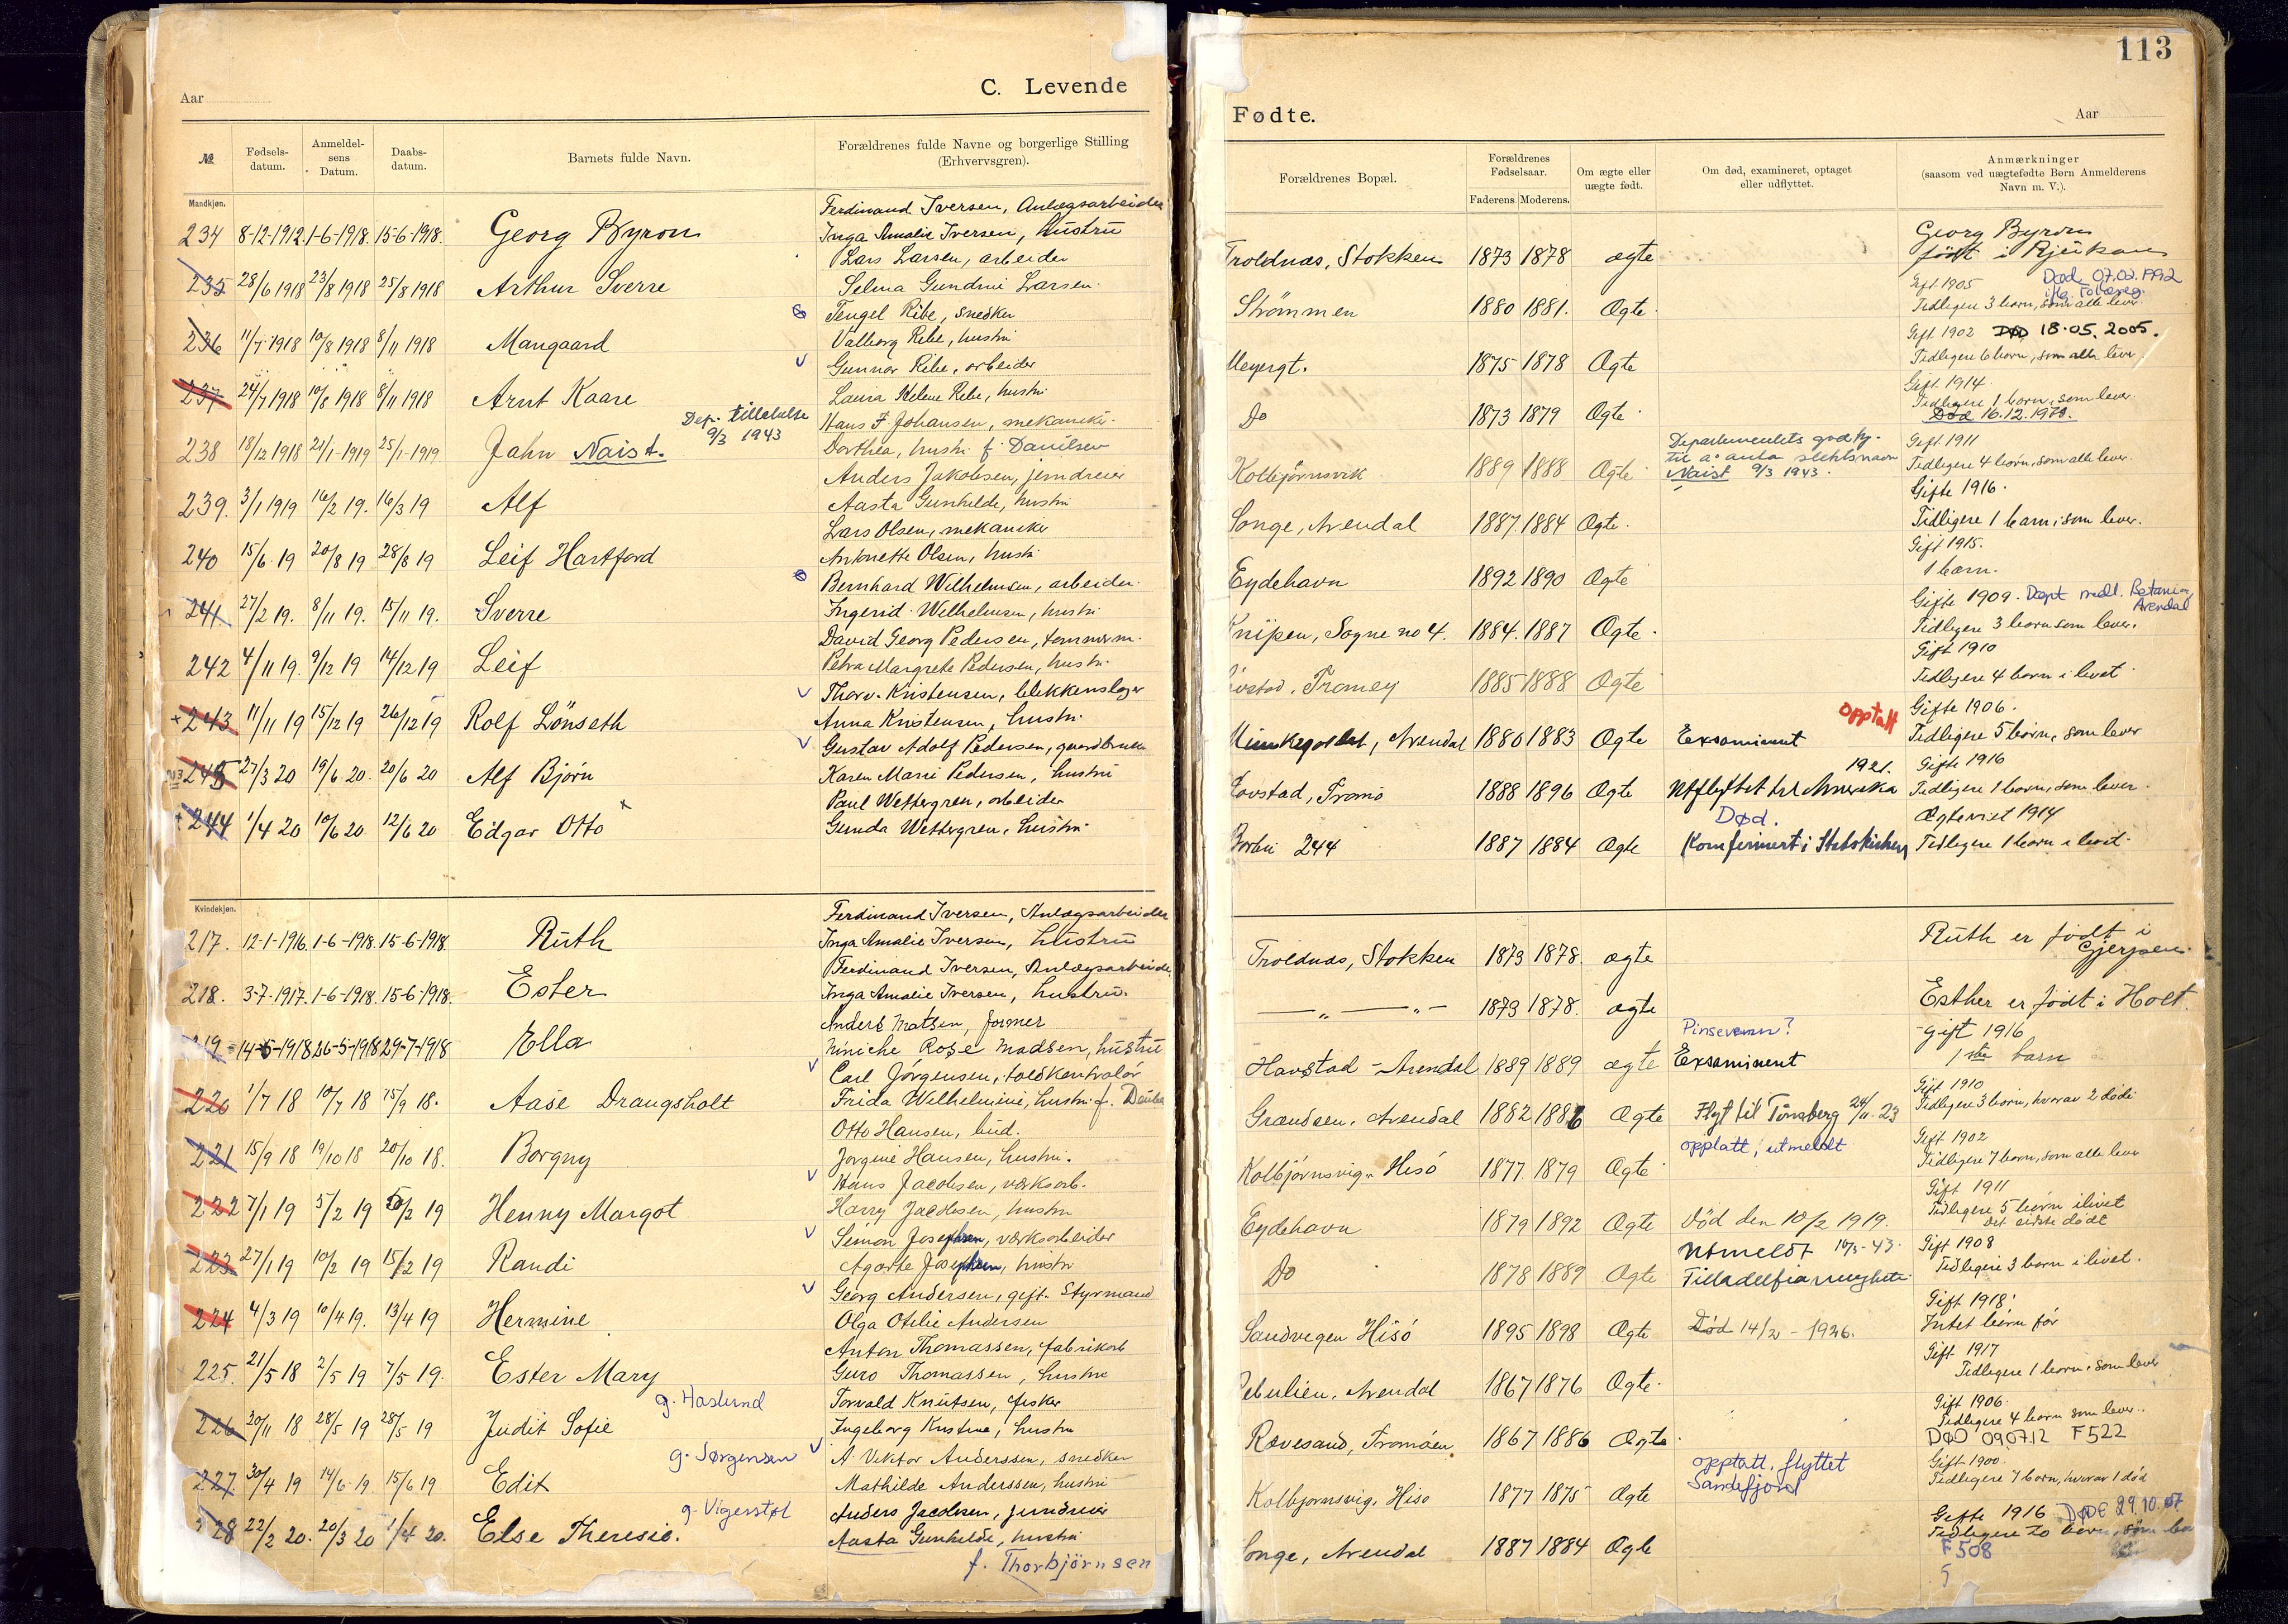 Aar
C. Levende
№
Fødsels-
datum.
Anmeldel-
sens
Datum.
Daabs-
datum.
Barnets fulde Navn.
Forældrenes fulde Navne og borgerlige Stilling
(Erhvervsgren).
Mandkjøn.
Ferdinand Iversen, Anlægsarbeider
234 8-12-1912. 1-6-1918. 15-6-1918. Georg Byron Inga Amalie Iversen, hustru
Lars Larsen, arbeider
235 28/6 1918 23/8 1918 25/8 1918 Arthur Sverre Selma Gundine Larsen.
Tengel Ribe, snedker
236 11/7 1918 10/8 1918 8/11 1918 Mangaard Valborg Ribe, hustru
Gunnar Ribe, arbeider
237 24/7 1918 10/8 1918 8/11 1918 Arnt Kaare Laura Helene Ribe, hustru
Dep. tillatelse
9/3 1943
Hans F. Johansen, mekaniker.
238 18/12 1918 21/1-1919 25/1-1919 Jahn Naist. Dorthea, hustru f. Danilsen
Anders Jakobsen, jerndreier
239. 3/1 1919 16/2 19. 16/3 19 Alf Aasta Gunhilde, hustru
Lars Olsen, mekaniker
240 15/6 19 20/8 19 28/8 19 Leif Hartford Antonette Olsen, hustru
Bernhard Wilhelmsen, arbeider.
241 27/2 19. 8/11 19. 15/11 19. Sverre Ingerid Wilhelmsen, hustru
David Georg Pedersen, tømmerm.
242 4/11 19. 9/12 19 14/12 19 Leif Petra Margrete Pedersen, hustru
Thorv. Kristensen, blekkenslager
243 11/11 19 15/12 19 26/12 19 Rolf Lönseth Anna Kristensen, hustru
Gustav Adolf Pedersen, gaardbruker
245 27/3 20 19/6 20. 20/6 20 Alf Bjørn Karen Marie Pedersen, hustru
Paul Wettergren, arbeider
244 1/4 20 10/6 20 12/6 20 Edgar Otto Gunda Wettergren, hustru
Kvindekjøn.
Ferdinand Iversen, Anlægsarbeider
217. 12-1-1916. 1-6-1918. 15-6-1918. Ruth Inga Amalie Iversen, hustru
Ferdinand Iversen, Anlægsarbeider
218. 3-7-1917. 1-6-1918. 15-6-1918. Ester Inga Amalie Iversen, hustru.
Anders Matsen, former
219 14-5-1918 26-5-1918 29-7-1918 Ella Rose Madsen, hustru
Carl Jörgensen, toldkontrolör
220 1/7 18 10/7 18 15/9 18. Aase Drangsholt Frida Wilhelmine, hustru f.
Otto Hansen, bud.
221 15/9 18 19/10 18 20/10 18. Borgny Jorgine Hansen, hustru.
Hans Jacobsen, verksarb.
222 7/1 19 5/2 19 /2 19 Henny Margot Harry Jacobsen, hustru
Simon Josephsen, verksarbeider
223 27/1 19 10/2 19 15/2 19 Randi Agathe Josephsen, hustru
Georg Andersen, gift. Styrmand
224 4/3 19 10/4 19. 13/4 19 Hermine Olga Otilie Andersen
Anton Thomassen, fabrikarb
225. 21/5 18 2/5 19 7/5 19. Ester Mary Guro Thomassen, hustru
g. Haslund Torvald Knutsen, fisker
226 20/11 18 28/5 19 28/5 19 Judit Sofie Ingeborg Kristine, hustru
g. Jørgensen A. Viktor Anderssen, snedker
227 30/4 19 14/6 19 15/6 19 Edit Mathilde Anderssen, hustru
g. Vigerstøl Anders Jacobsen, jerndreier
228 22/2 20. 20/3 20 1/4 20. Else Theresie. Aasta Gunhilde, hustru
f. Thorbjörnsen
113
Fødte.
Aar
Forældrenes Bopæl.
Forældrenes
Fødselsaar.
Faderens Moderens.
Om ægte eller
uægte født.
Om død, examineret, optaget
eller udflyttet.
Anmærkninger
(saasom ved uægtefødte Børn Anmelderens
Navn m. V.).
Georg Byron
Troldnæs, Stokken 1873 1878 ægte født i Rjukan
Gift 1905 Død 07.02.1992
Strömmen 1880 1881. Ægte. Tidligere 3 barn, som alle lever.
Gift 1902 Død 18.05.2005.
Meyergt. 1875 1878 Ægte Tidligere 6 børn, som alle lever.
Gift 1914.
Tidligere 1 barn, som lever.
Do 1873 1879 Ægte Død 16.12.1979.
Departementets godkj.
til å anta slektsnavn Gift 1911
Kolbjørnsvik 1889 1888 Ægte Naist 9/3 1943. Tidligere 4 børn, som alle lever.
Gifte 1916.
Songe, Arendal 1887 1884 Ægte. Tidligere 1 barn, som lever.
Gift 1915.
Eydehavn 1892 1890 Ægte 1 barn.
Gifte 1909. Døpt medl. Betania, Arendal
Knipen, Sogne no 4. 1884. 1887 Ægte. Tidligere 3 børn som lever.
Gift 1910
Tromøy 1885 1888 Ægte Tidligere 4 børn i livet
opptatt Gifte 1906.
Munkegoldet, Arendal 1880 1883 Ægte Exsaminert Tidligere 5 børn, som lever
1921. Gifte 1916
Tromø 1888 1896 Ægte Utflyttet til Amerika Tidligere 1 barn, som lever.
Død. Ægteviet 1914
Barbu 244 1887 1884 Ægte Konfirmert i Statskirken Tidligere 1 barn i livet.
Ruth er født i
Troldnæs, Stokken 1873 1878. ægte Gjerpen.
— „ — „ — 1873 1878. ægte Esther er født i Holt.
Pinsevenn? gift 1916
Havstad - Arendal 1889 1889 ægte Exsaminert 1ste barn
Gift 1910
Grændsen, Arendal 1882 1886 Ægte Flyt til Tønsberg 24/11-23 Tidligere 3 børn, hvorav 2 døde
opptatt, utmeldt Gift 1902
Kolbjørnsvig, Hisö 1877. 1879 Ægte Tidligere 7 børn, som alle lever
Gift 1911
Tidligere 5 børn i livet
Eydehavn 1879 1892 Ægte Död den 10/2 1919. Det sidste dödt
Utmeldt 16/3-43. Gift 1908
Do 1878 1889 Ægte Filadelfia Tidligere 3 børn i livet.
Gift 1918.
Sandvegen Hisö 1895 1898 Ægte Död 14/2-1926. Intet børn før
Gift 1917
Arendal 1867 1876 Ægte. Tidligere 1 barn, som lever
Gift 1906.
Tidligere 4 børn som lever.
Rævesand, Tromøen. 1867 1886 Ægte. DØD 090712 F522
opptatt, flyttet Gift 1900
Sandefjord Tidligere 7 børn, hvorav 1 död
Kolbjørnsvig, Hisö 1877 1875 Ægte
Gifte 1916 DØD 29.10.07
Songe, Arendal 1887 1884 Ægte Tidligere to børn, som lever
F508